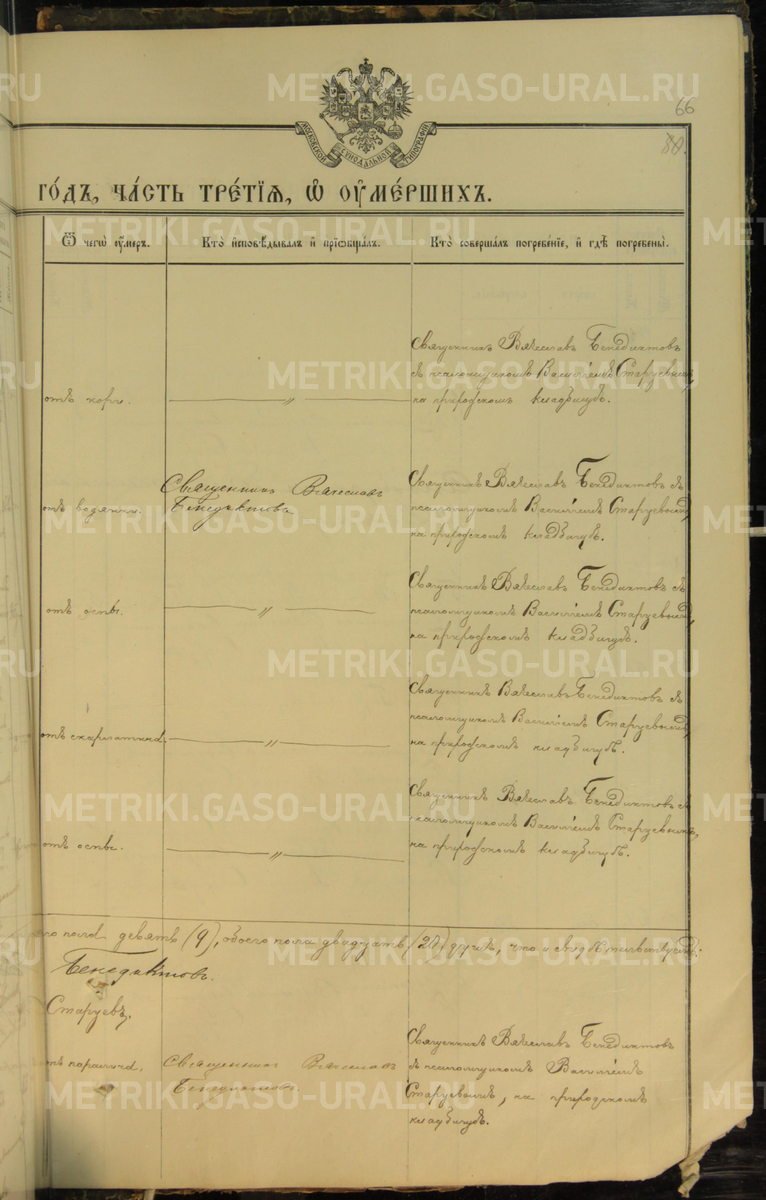 66
80.
МОСКОВСКОЙ СѴНОДАЛЬНОЙ ТИПОГРАФІИ
ГОДЪ, ЧАСТЬ ТРЕТІЯ, Ѡ ОУМЕРШИХЪ.
Ѿ чегѡ оумеръ.
Кто исповѣдывалъ и пріобщалъ.
Кто совершалъ погребеніе, и гдѣ погребены.
Священникъ Вячеславъ Бенедиктовъ
съ псаломщикомъ Василіемъ Старцевымъ,
отъ кори.
— „ —
на приходскомъ кладбищѣ.
Священникъ Вячеславъ
Бенедиктовъ
Священникъ Вячеславъ Бенедиктовъ съ
отъ водянки.
псаломщикомъ Василіемъ Старцевымъ,
на приходскомъ кладбищѣ.
Священникъ Вячеславъ Бенедиктовъ съ
отъ оспы.
— „ —
псаломщикомъ Василіемъ Старцевымъ,
на приходскомъ кладбищѣ.
Священникъ Вячеславъ Бенедиктовъ съ
псаломщикомъ Василіемъ Старцевымъ,
отъ скарлатины.
— „ —
на приходскомъ кладбищѣ.
Священникъ Вячеславъ Бенедиктовъ съ
псаломщикомъ Василіемъ Старцевымъ,
отъ оспы.
— „ —
на приходскомъ кладбищѣ.
пола девять (9), обоего пола двадцать душъ, что и свидѣтельствуемъ:
Бенедиктовъ.
Старцевъ.
отъ паралича.
Священникъ Вячеславъ
Бенедиктовъ.
Священникъ Вячеславъ Бенедиктовъ
съ псаломщикомъ Василіемъ
Старцевымъ, на приходскомъ
кладбищѣ.
METRIKI.GASO-URAL.RU